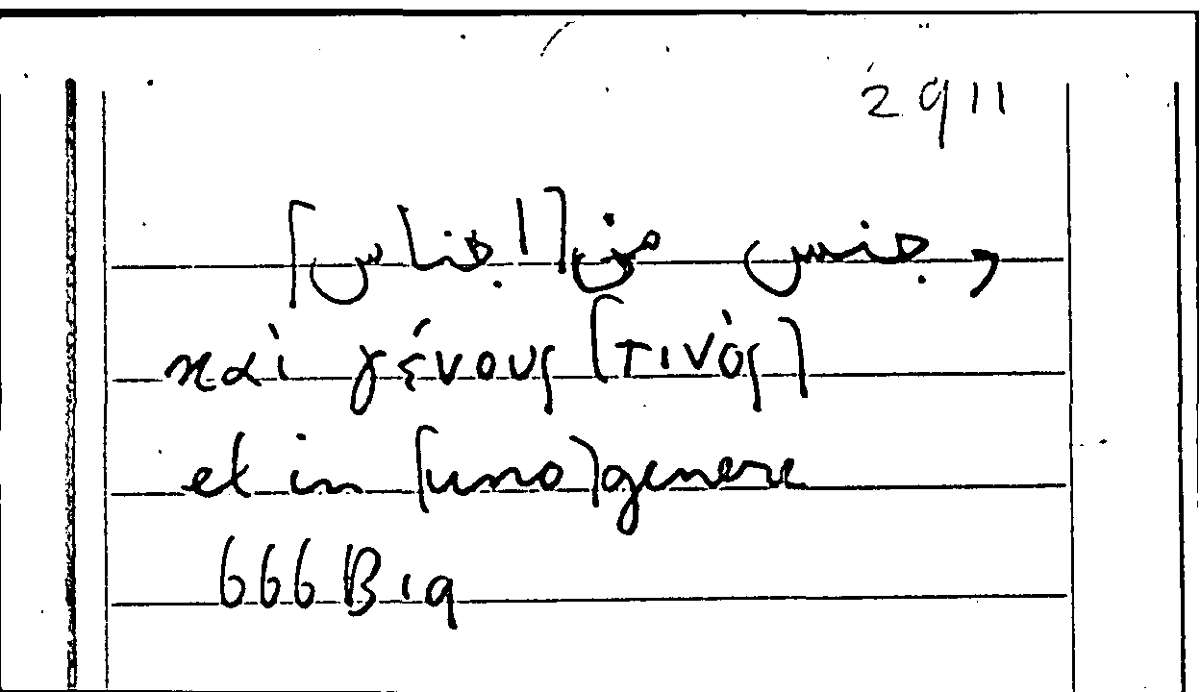 2911
وجنس من [اجناس]
καὶ γένους [τινὸς]
et in [uno] genere
666B19